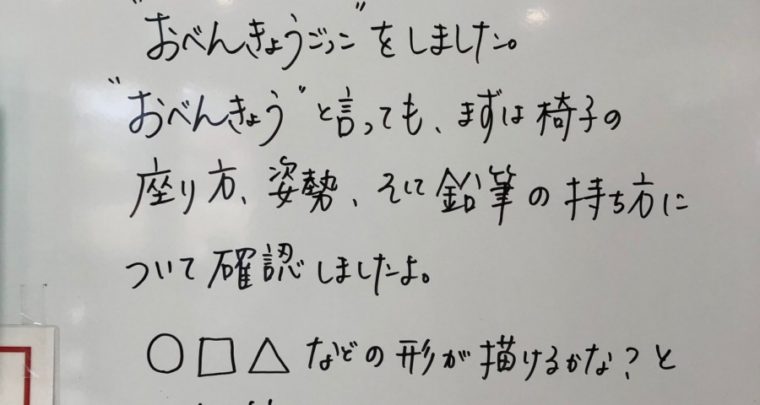 "おべんきょうごっこ"をしました。
"おべんきょう"と言っても、まずは椅子の
座り方、姿勢、そして鉛筆の持ち方に
ついて確認しましたよ。
○□△などの形が描けるかな？と